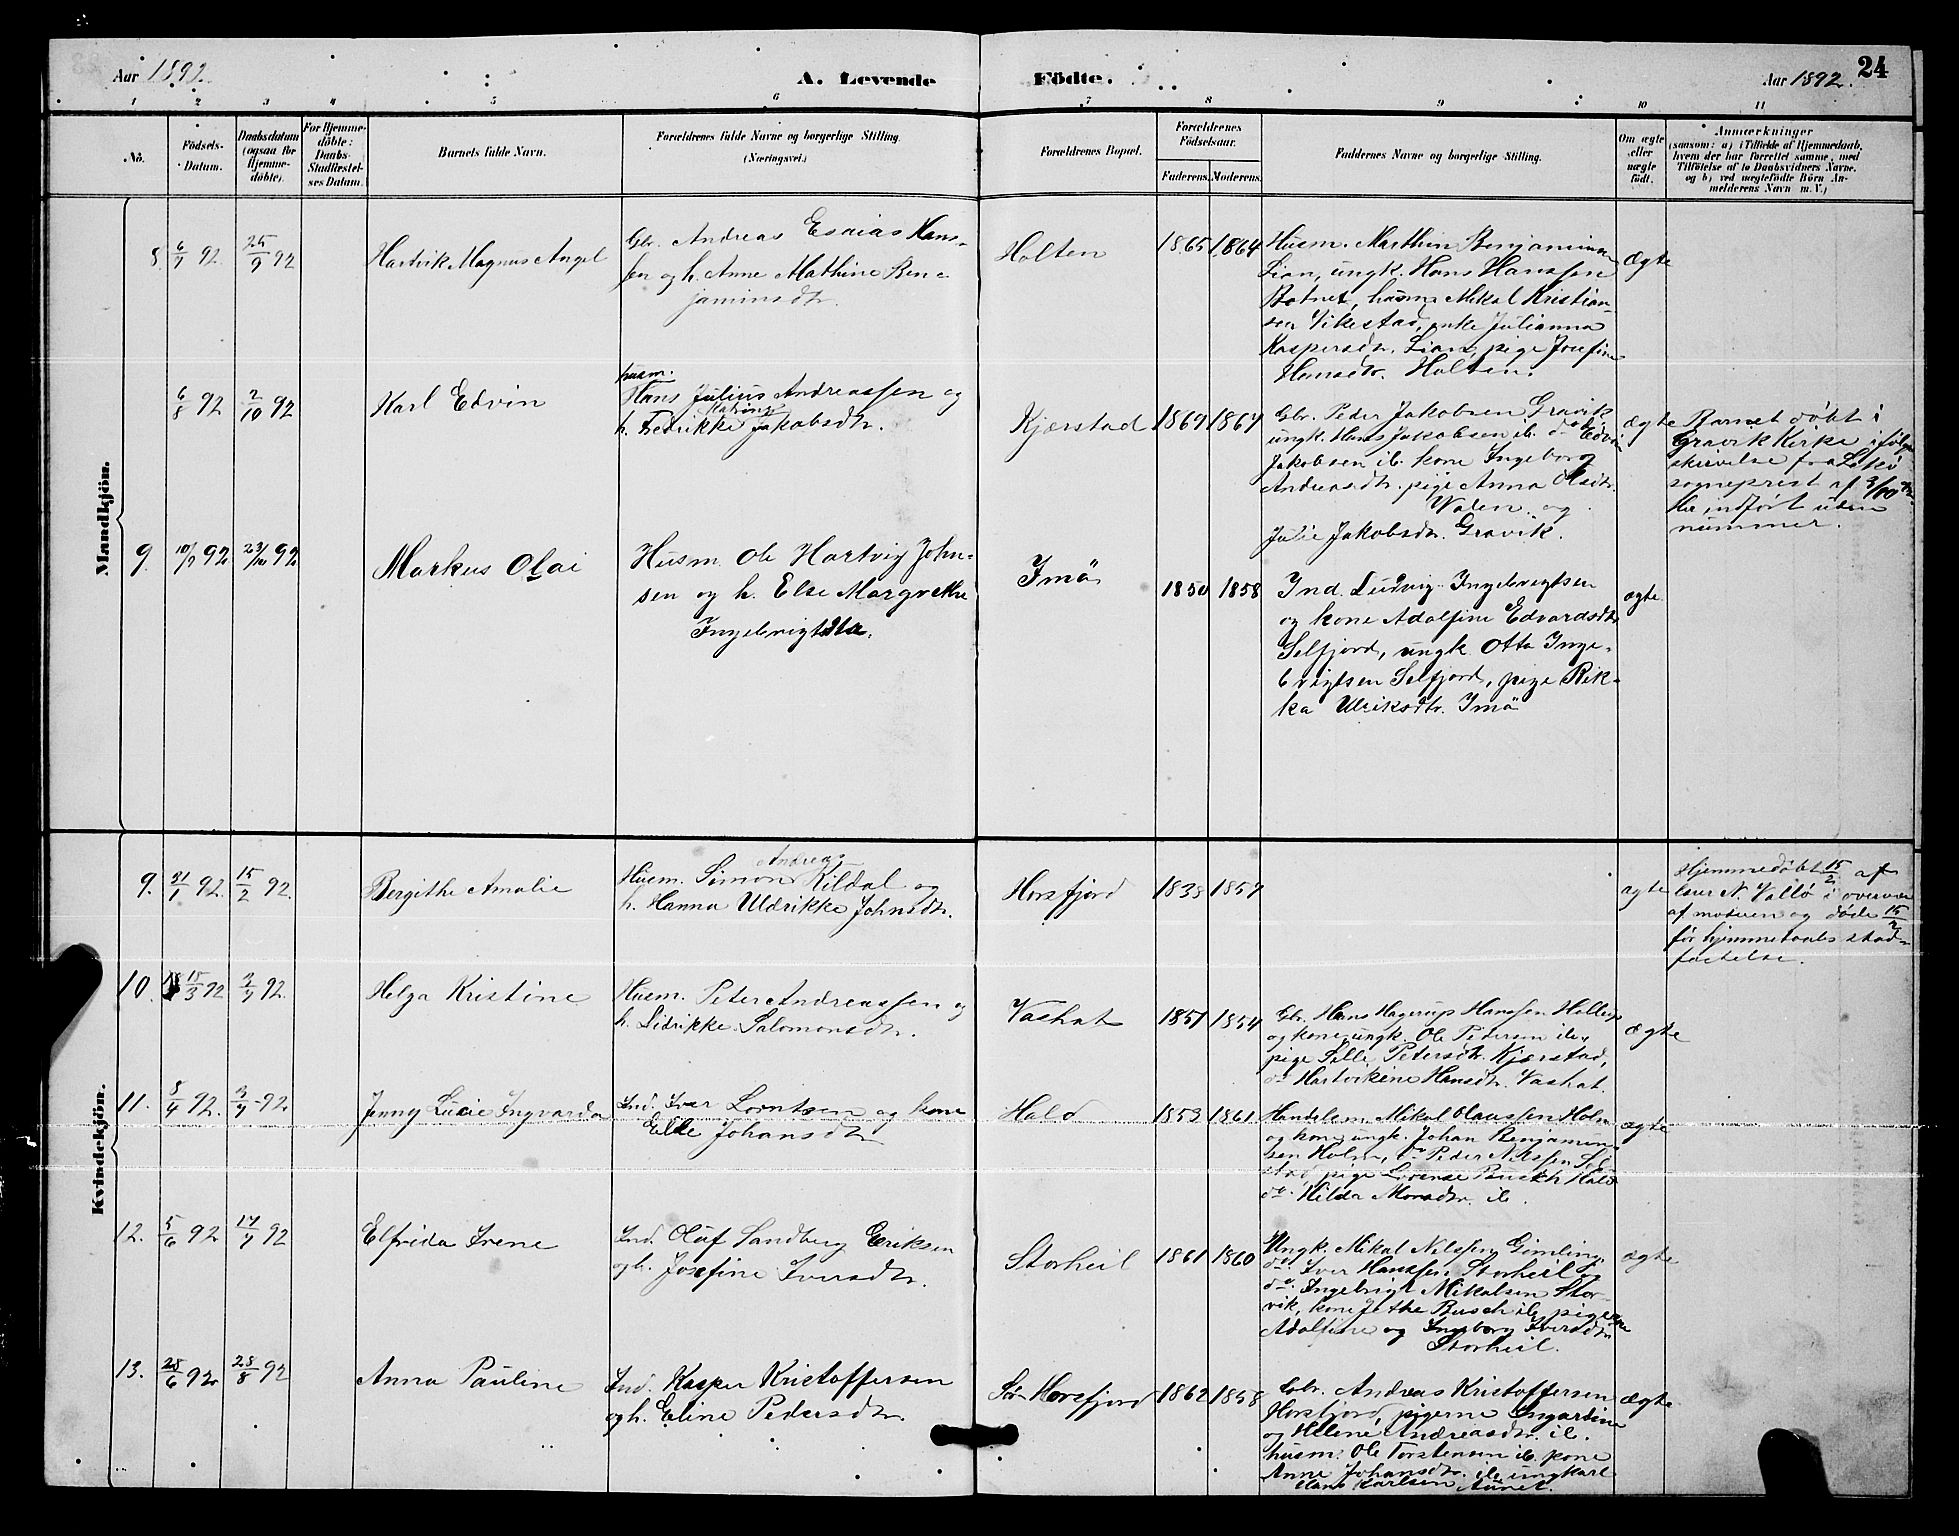 Aar 1892.
A. Levende Födte.
Aar 1892.
24
1 2 3 4 5 6 7 8 9 10 11
No.
Födsels-
Datum.
Daabsdatum
(ogsaa for
Hjemme-
döbte).
For Hjemme-
döbte:
Daabs-
Stadfæstel-
ses Datum.
Barnets fulde Navn.
Forældrenes fulde Navne og borgerlige Stilling.
(Næringsvei.)
Forældrenes Bopæl.
Forældrenes
Födselsaar.
Faderens. Moderens.
Faddernes Navne og borgerlige Stilling.
Om ægte
eller
uægte
födt.
Anmærkninger
(saasom: a) i Tilfælde af Hjemmedaab,
hvem der har forrettet samme, med
Tilföielse af to Daabsvidners Navne,
og b) ved uægtefödte Börn An-
melderens Navn m. V.)
Mandkjön.
8. 6/7 92. 25/9 92
Hartvik Magnus Angel
Gbr. Andreas Esaias Hans-
sen og h. Anne Mathine Ben-
jaminsdtr.
Holten
1865 1864
Husm. Marthin Benjaminsen
Lian, ungk. Hans Hanssen
Botnet, husm. Mikal Kristian-
sen Vikestad, enke Julianna
Kaspersdtr. Lian, pige Josefine
Hansdtr. Holten.
Ægte
6/8 92 2/10 92
Karl Edvin
husm.
Hans Julius Andreassen og
h. Fredrikke Katrine Jakobsdtr.
Kjærstad
1869 1867
Gbr. Peder Jakobsen Gravik
ungk. Hans Jakobsen ib. do Edvin
Jakobsen ib. kone Ingeborg
Andreasdtr. pige Anna Olsdtr.
Valen og
Julie Jakobsdtr. Gravik.
ægte
Barnet döbt i
Gravik Kirke ifölge
skrivelse fra Lekö
sogneprest af 3/10 92.
Her indfört uden
nummer.
9. 10/9 92. 23/10 92
Markus Olai
Husm. Ole Hartvig John-
sen og h. Else Margrethe
Ingebrigtsda.
Imö
1850 1858
Ind. Ludvig Ingebrigtsen
og kone Adolfine Edvardsdtr.
Selfjord, ungk. Otto Inge-
brigtsen Selfjord, pige Rik-
ka Ulriksdtr. Imö
ægte.
Kvindekjön.
9. 31/1 92. 15/2 92.
Bergithe Amalie
Husm. Simon Andreas Kildal og
h. Hanna Uldrikke Johnsdtr.
Horsfjord
1838 1857
ægte
Hjemmedöbt 15/2 af
lærer N. Vallö i overvær
af moderen og döde 15/2
för hjemmedaabs stad-
fæstelse.
10. 15/3 92 3/7 92.
Helga Kristine
Husm. Peter Andreassen og
h. Lidrikke Salomonsdtr.
Vashat
1851 1854
Gbr. Hans Hagerup Hanssen
og kone, ungk. Ole Pedersen ib.,
pige Sille Petersdtr. Kjærstad,
do Hartvikine Hansdtr. Vashat.
ægte
11. 8/4 92. 3/7 92.
Jenny Lucie Ingvarda
Ind. Iver Lorntsen og kone
Elle Johansdtr
Hald
1853 1861.
Handelsm. Mikal Clausen Holm
og kone, ungk. Johan Benjamin-
sen Holm, do Peder Nilssen
pige Lorense Buschh Hald
do. Hilda Monsdtr. ib.
ægte
12. 5/6 92 17/7 92
Elfrida Irene
Ind. Oluf Sandberg Eriksen
og h. Josefine Iversdtr.
Storheil
1861 1860
Ungk. Mikal Nilssen Gimling,
do Iver Hanssen Storheil og
do. Ingebrigt Mikalsen Stor-
vik, kone Jethe Busch ib. pigerne
Adolfine og Ingeborg Iversdtr.
Storheil.
ægte
13. 28/6 92. 28/8 92
Anna Pauline
Ind. Kasper Kristoffersen
og h. Eline Pedersdtr.
Sör Horsfjord
1862 1858
Gbr. Andreas Kristoffersen
Horsfjord, pigerne Ingardine
og Helene Andreasdtr. ib.
husm. Ole Torstensen ib. kone
Anne Johansdtr. ib., ungkarl
Hans Karlsen Aunet.
ægte.